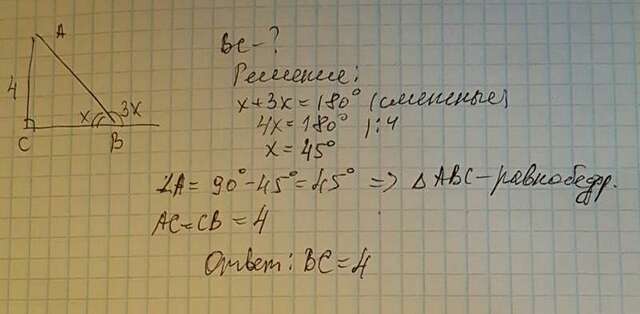 A
4
x
3x
C
B
BC - ?
Решение:
x+3x=180° (смежные)
4x=180° |:4
x=45°
∠A= 90°-45°=45° => △ABC-равнобедр.
AC=CB=4
Ответ: BC=4